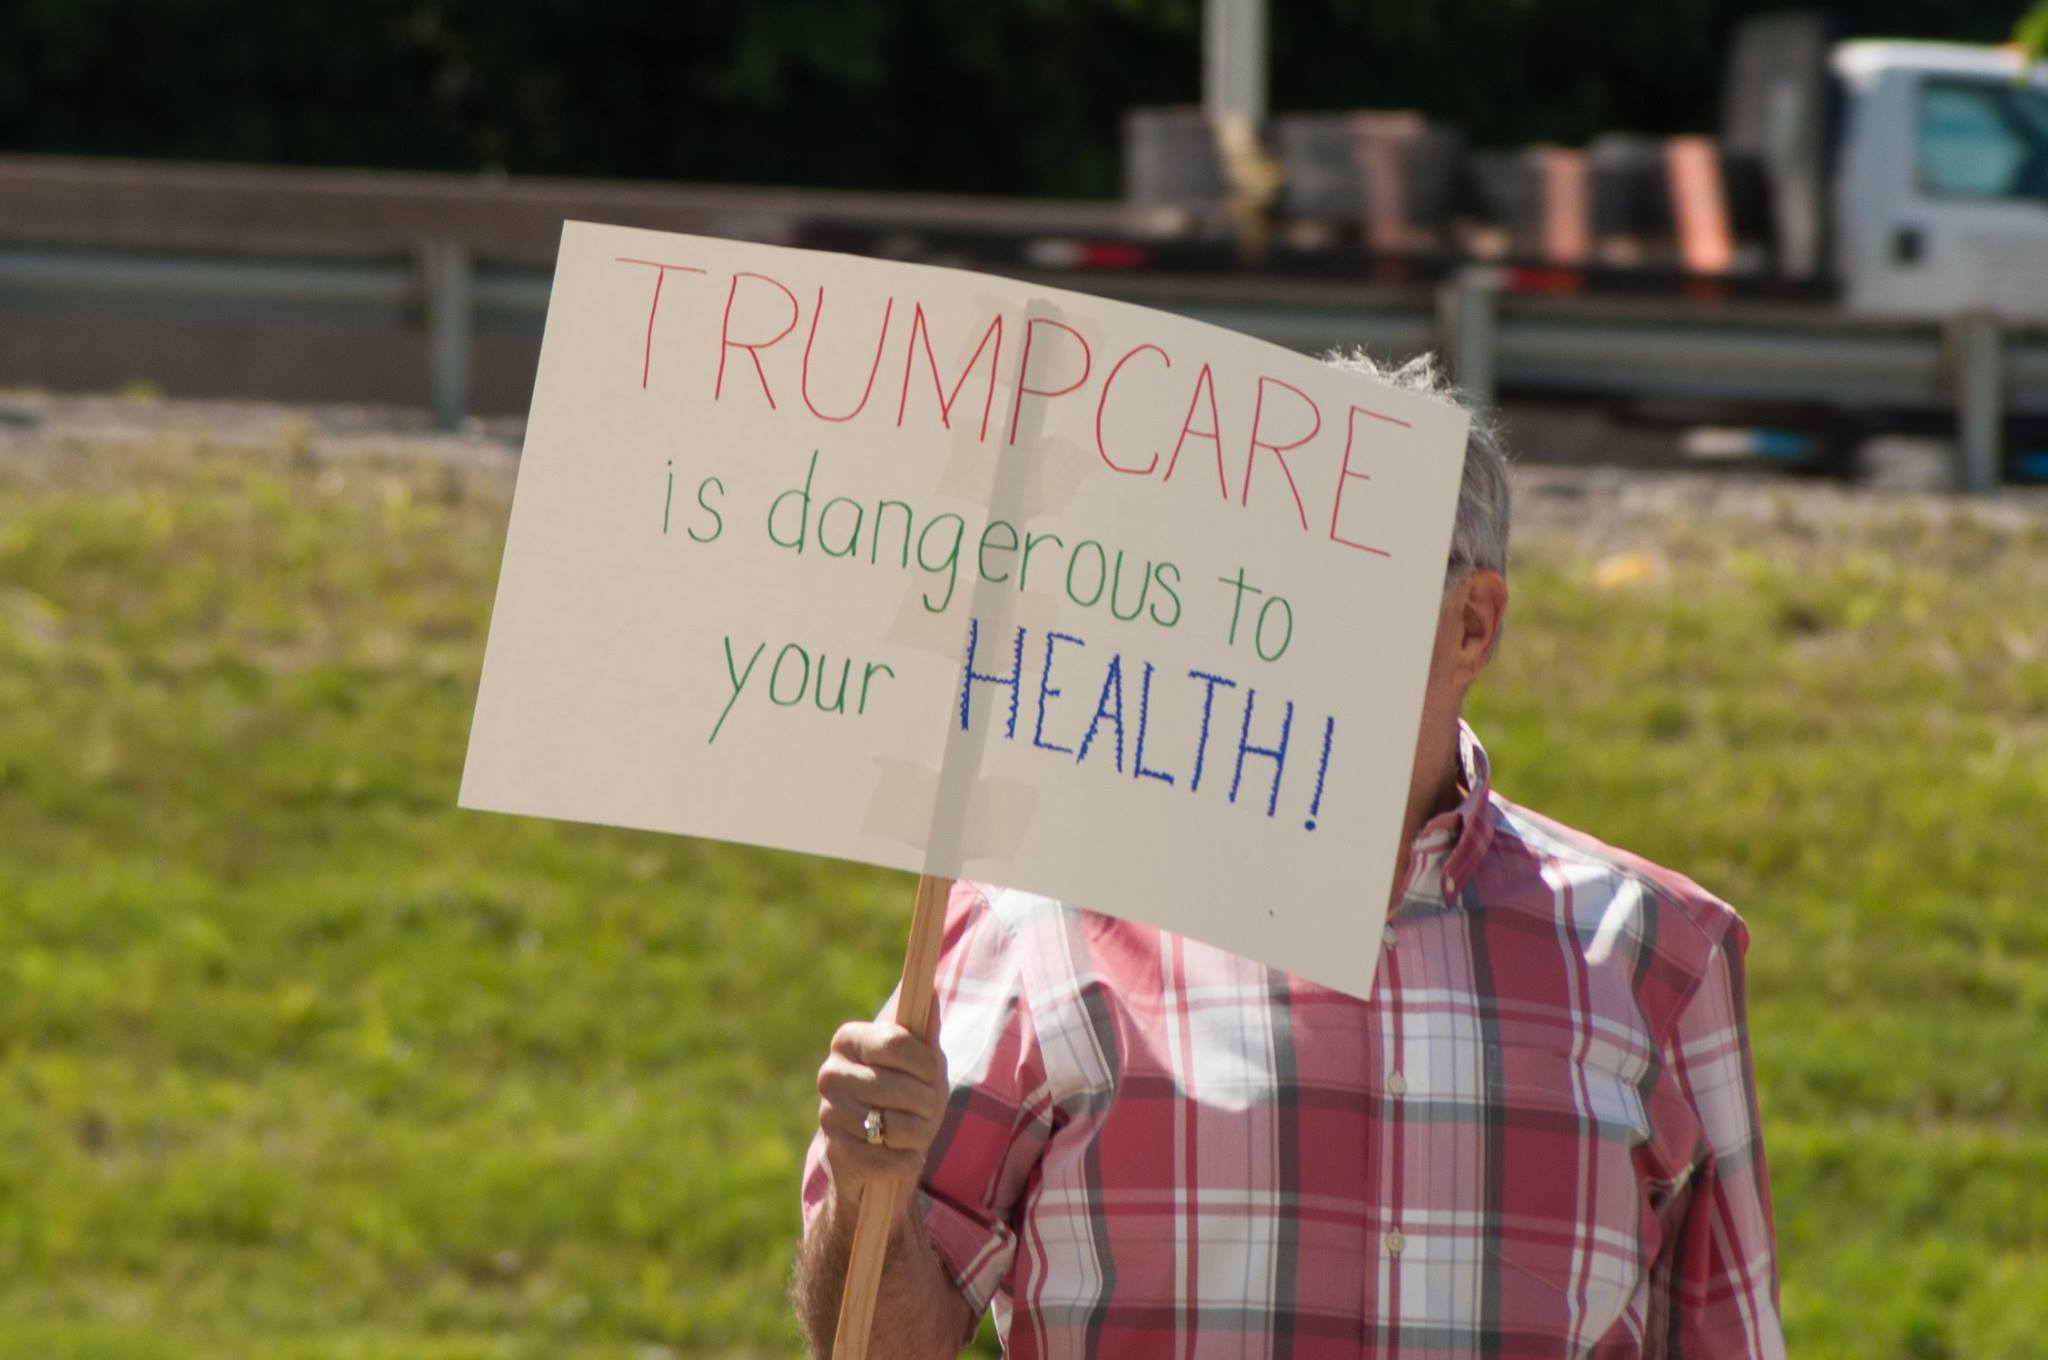 TRUMPCARE
is dangerous to
your HEALTH!